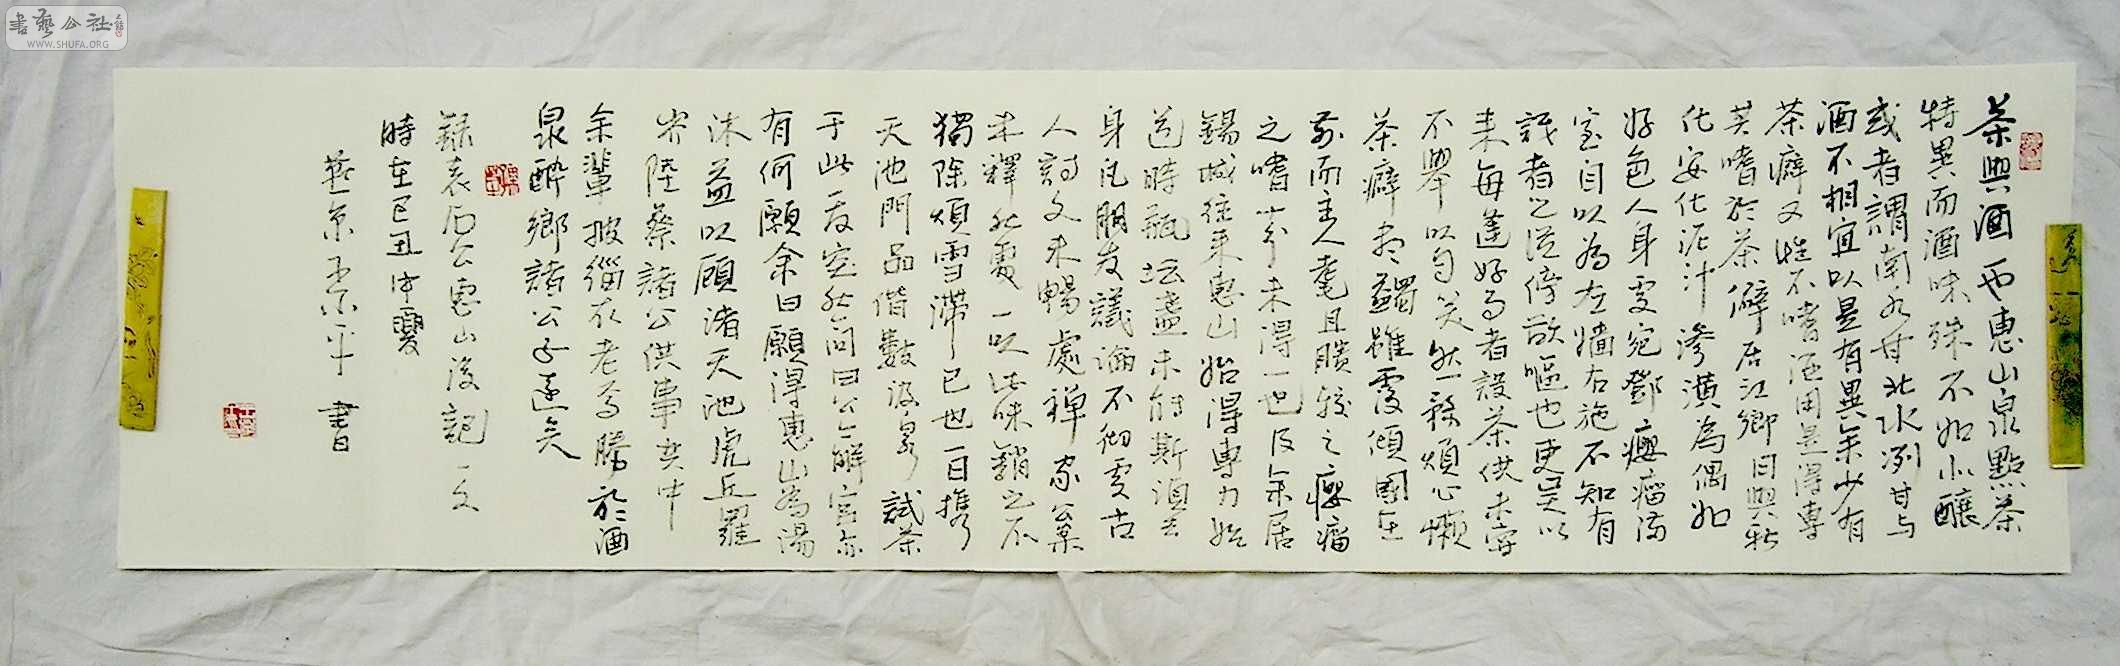 書藝公社
WWW.SHUFA.ORG
茶興酒也惠山泉點茶
特異而酒味殊不如小釀
或者謂南水甘北水冽甘与
酒不相宜以是有異余少有
茶癖又性不嗜酒用是得專
其嗜於茶僻居江鄉日與新
化安化泥汁滲潢為偶如
好色人身處宛鄧癭瘤滿
室自以為左嬙右施不知有
識者之從傍欲嘔也更是以
来每逢好事者設茶供未嘗
不舉以自笑然一務煩心懶
茶癖盡蠲雖覆傾國在
前而主人耄且聵較之癭瘤
之嗜未得一也及余居
錫城往来惠山始得專力始
時瓶坛盏未能斯須去
身凡朋友議論不徹處古
人詩文未暢處禪家公案
未釋然處一以此味銷之不
獨除煩雪滯已也一日携
天池門品偕數汲泉試茶
于此一友突然問曰公今解官亦
有何願余曰願得惠山為湯
沐益以顧渚天池虎丘羅
岕陸蔡諸公供事其中
余輩披緇衣老焉勝於酒
泉醉鄉諸公子遠矣
錄袁石公惠山後記一文
時在己丑仲夏
京書